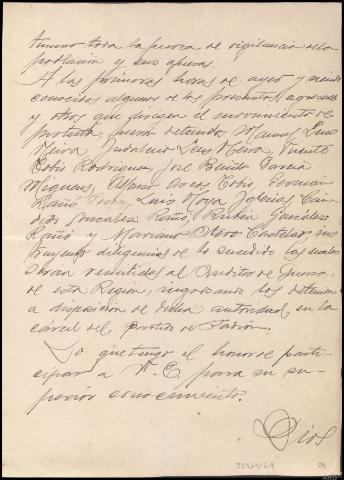 tumor toda la fuerza de vigilancia de la
población y sus afueras.
A las primeras horas de ayer y siendo
conocidos algunos de los presuntos agresores
y otros que dirigen el movimiento de
protesta, fueron detenidos Manuel Luis
Neira, Indalecio Luis Neira, Vicente
Cobio Rodriguez, José Benito Garcia
Migueus, Arcos Cobio German
Raño Luis Moya Iglesias Can-
dido Gonzalez Raño, Rubin Gonzalez
Raño y Mariano Otero Castelao ins-
truyendo diligencias de lo sucedido las cuales
seran remitidas al Auditor de Guerra
de esta Región, ingresando los detenidos
a disposicion de dicha autoridad, en la
cárcel del partido de Padrón.
Lo que tengo el honor de parti-
cipar a V. E. para su su-
perior conocimiento.
Dios
32454/69